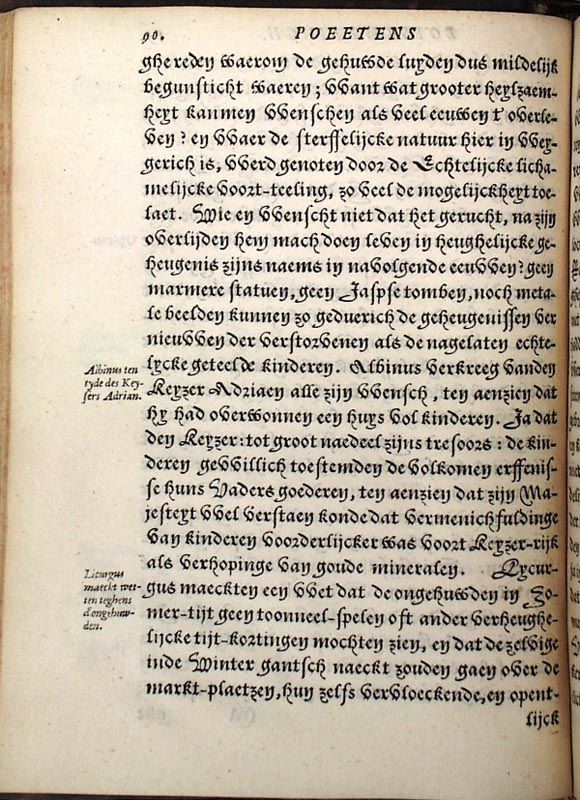 90. POEETENS
ghe reden waerom de gehuwde luyden dus mildelijk
begunsticht waeren; VVant wat grooter heylzaem-
heyt kanmen VVenschen als veel eeuwen t' overle-
ven? en VVaer de sterffelijcke natuur hier in VVey-
gerich is, VVerd genoten door de Echtelijcke licha-
melijcke voort-teeling, zo veel de mogelijckheyt toe-
laet. Wie en VVenscht niet dat het gerucht, na zijn
overlijden hem mach doen leven in heughelijcke ge-
heugenis zijns naems in navolgende eeuvven? geen
marmere statuen, geen Jaspse tomben, noch meta-
le beelden kunnen zo geduerich de geheugenissen ver
nieuvven der verstorvenen als de nagelaten echte-
lycke geteelde kinderen. Albinus verkreeg vanden
Keyzer Adriaen alle zijn VVensch, ten aenzien dat
hy had overwonnen een huys vol kinderen. Ja dat
den Keyzer: tot groot naedeel zijns tresoors: de kin-
deren gevvillich toestemden de volkomen erffenis-
se huns Vaders goederen, ten aenzien dat zijn Ma-
jesteyt VVel verstaen konde dat vermenichfuldinge
van kinderen voorderlijcker was voort Keyzer-rijk
als verhopinge van goude mineralen. Lycur-
gus maeckten een VVet dat de ongehuwden in Zo-
mer-tijt geen tooneel-spelen oft ander verheughe-
lijcke tijt-kortingen mochten zien, en dat de zelvige
inde Winter gantsch naeckt zouden gaen over de
markt-plaetzen, hun zelfs vervloeckende, en opent-
lijck
Albinus ten
tyde des Key-
sers Adrian.
Licurgus
maeckt wet-
ten teghens
d'ongehuw-
den.